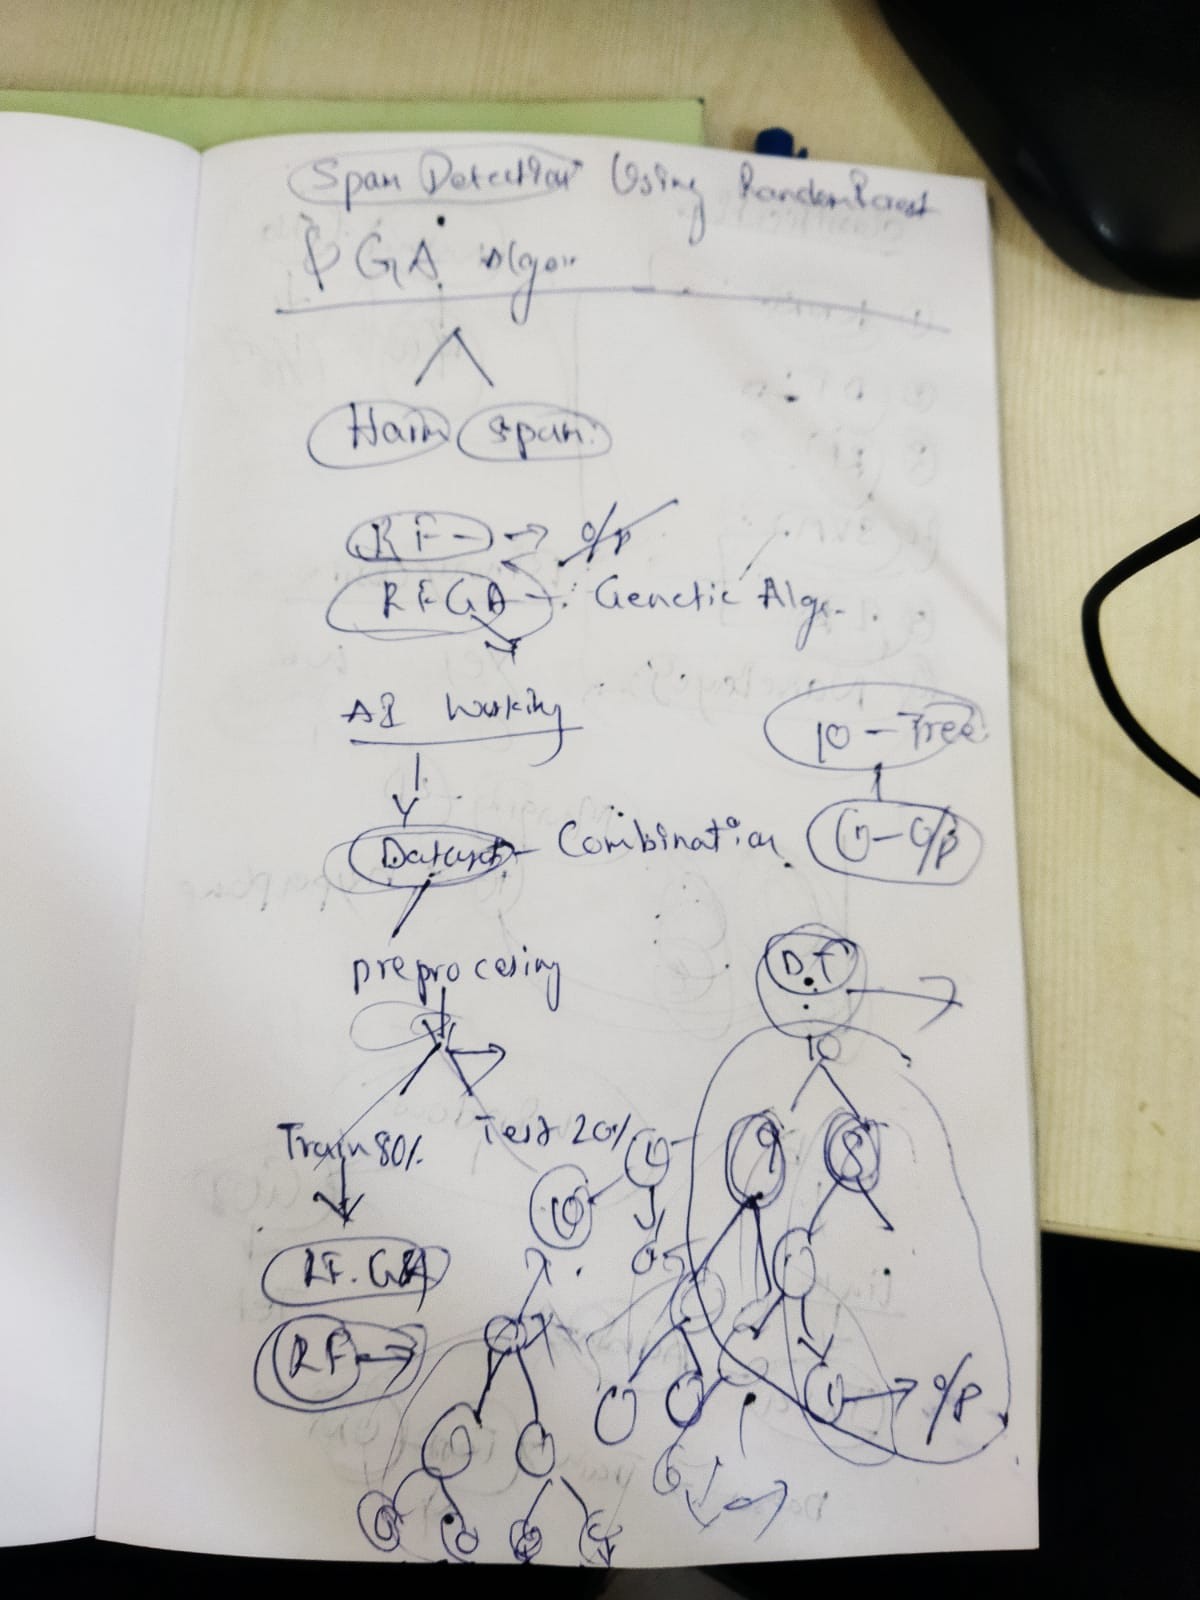 Spam Detection Using Random Forest
& GA Algo
Ham spam
RF → o/p
RFGA → Genetic Algo.
AI Working
10 - Tree
Dataset - Combination 1 - O/p
D.T
preprocesing
10
Train 80%. Test 20%
9 8
10
RF.GA
RF →
1 → o/p